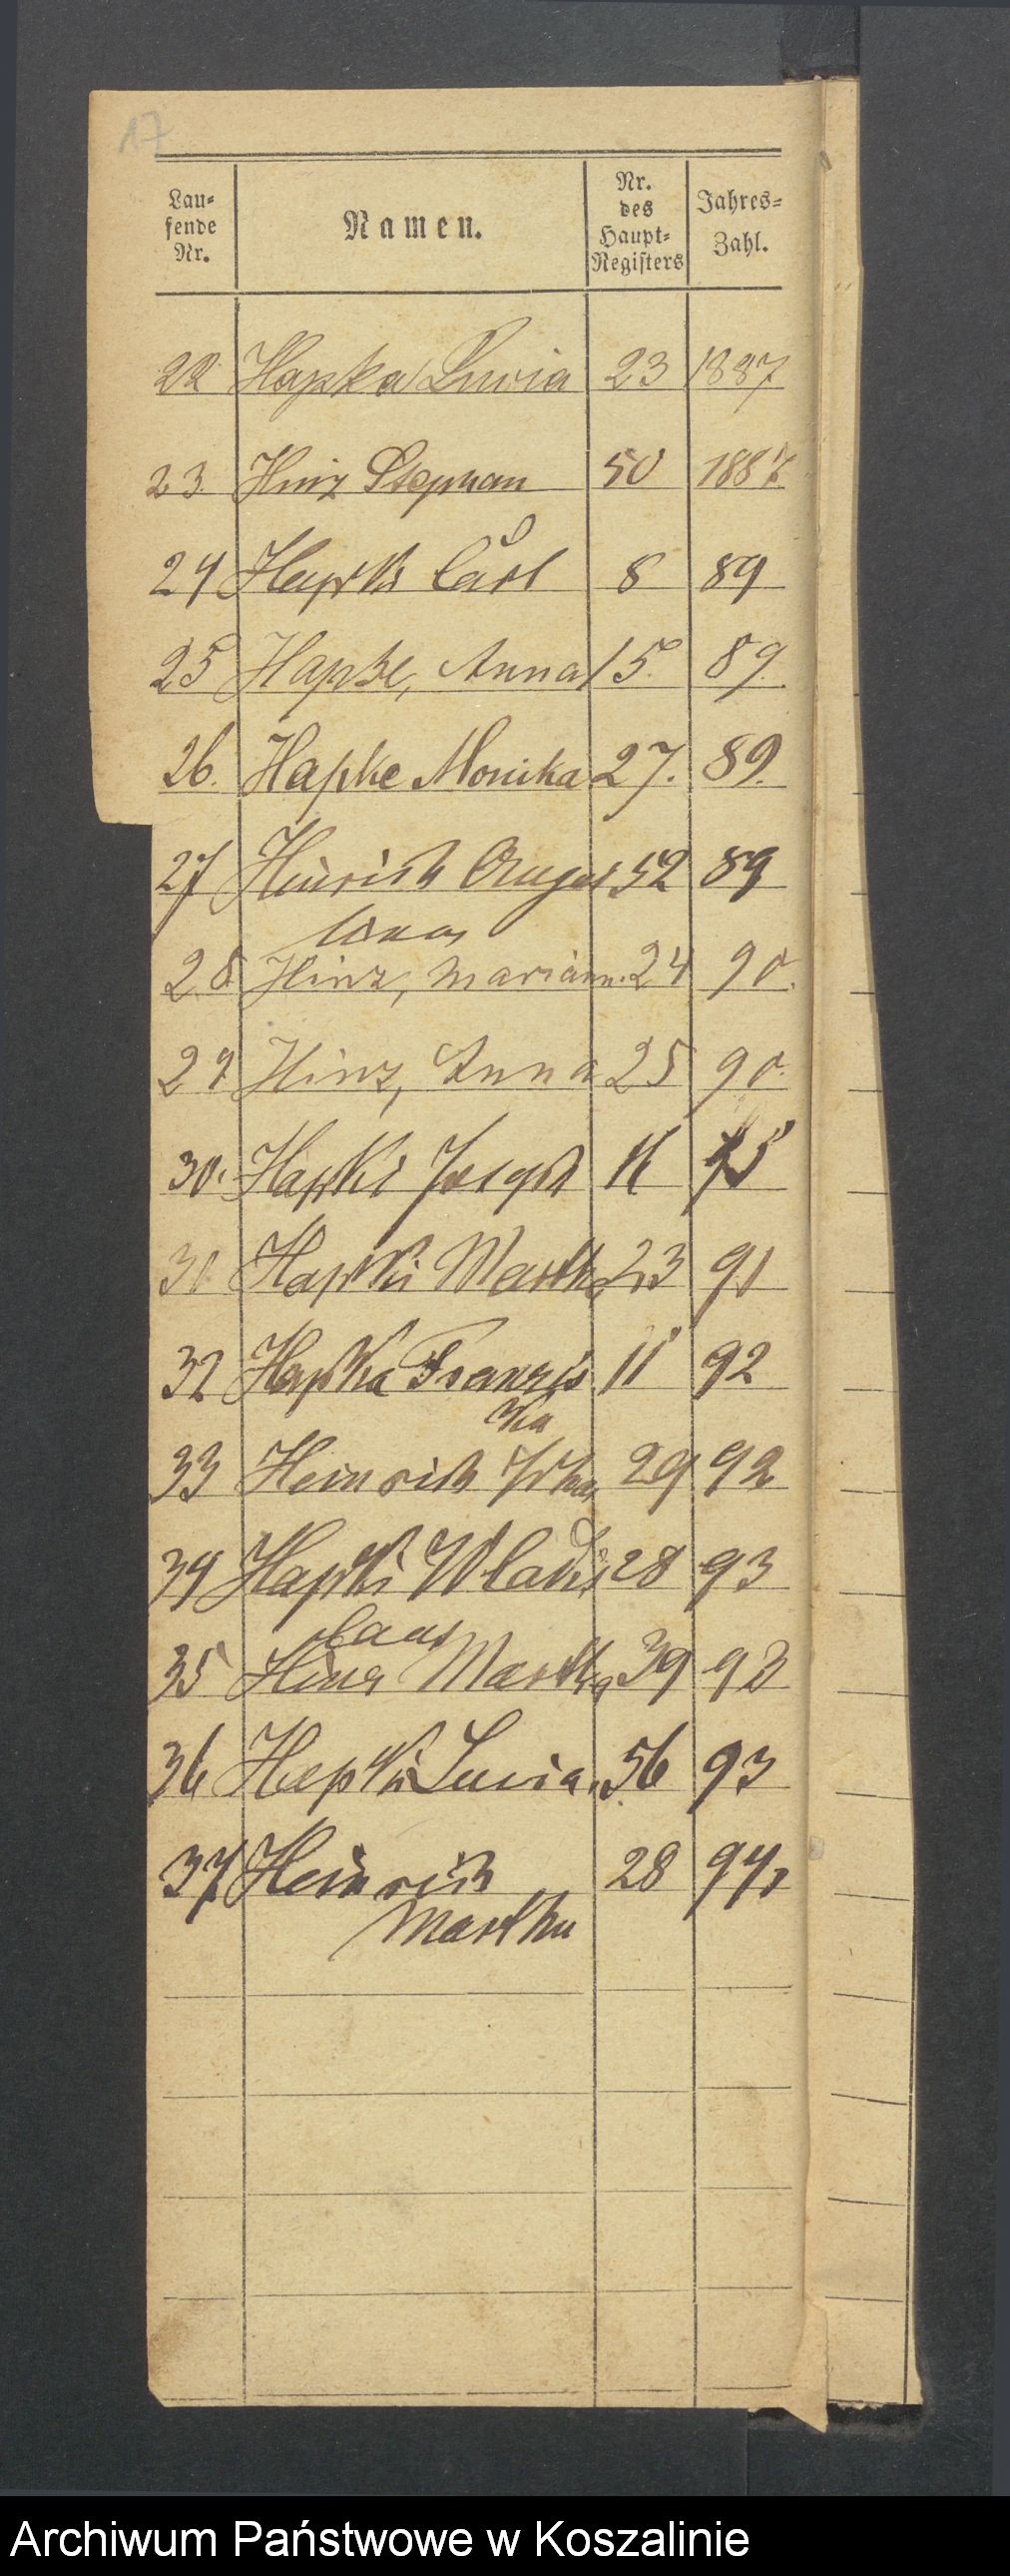 17
Lau-
fende
Nr.
Namen.
Nr.
des
Haupt-
Registers
Jahres-
Zahl.
22 Hapka Luvia 23 1887
23 Hinz Stephan 50 1887
24 Hapke Carl 8 89
25 Hapke, Anna 15. 89.
26. Hapke Monika 27. 89.
27 Heinrich August 52 89
28. Hinz, Mariann. 24 90.
29 Hinz, Anna 25 90.
30. Hapke Joseph 11
31 Hapke Martha 23 91
32 Hapka Franzis 11 92
ka
33 Heinrich Joh 29 92
34 Hapke Wladis 28 93
laus
35 Hinz Martha 39 93
36 Hapke Lucia 56 93
37 Heinrich 28 94
Martha
Archiwum Państwowe w Koszalinie